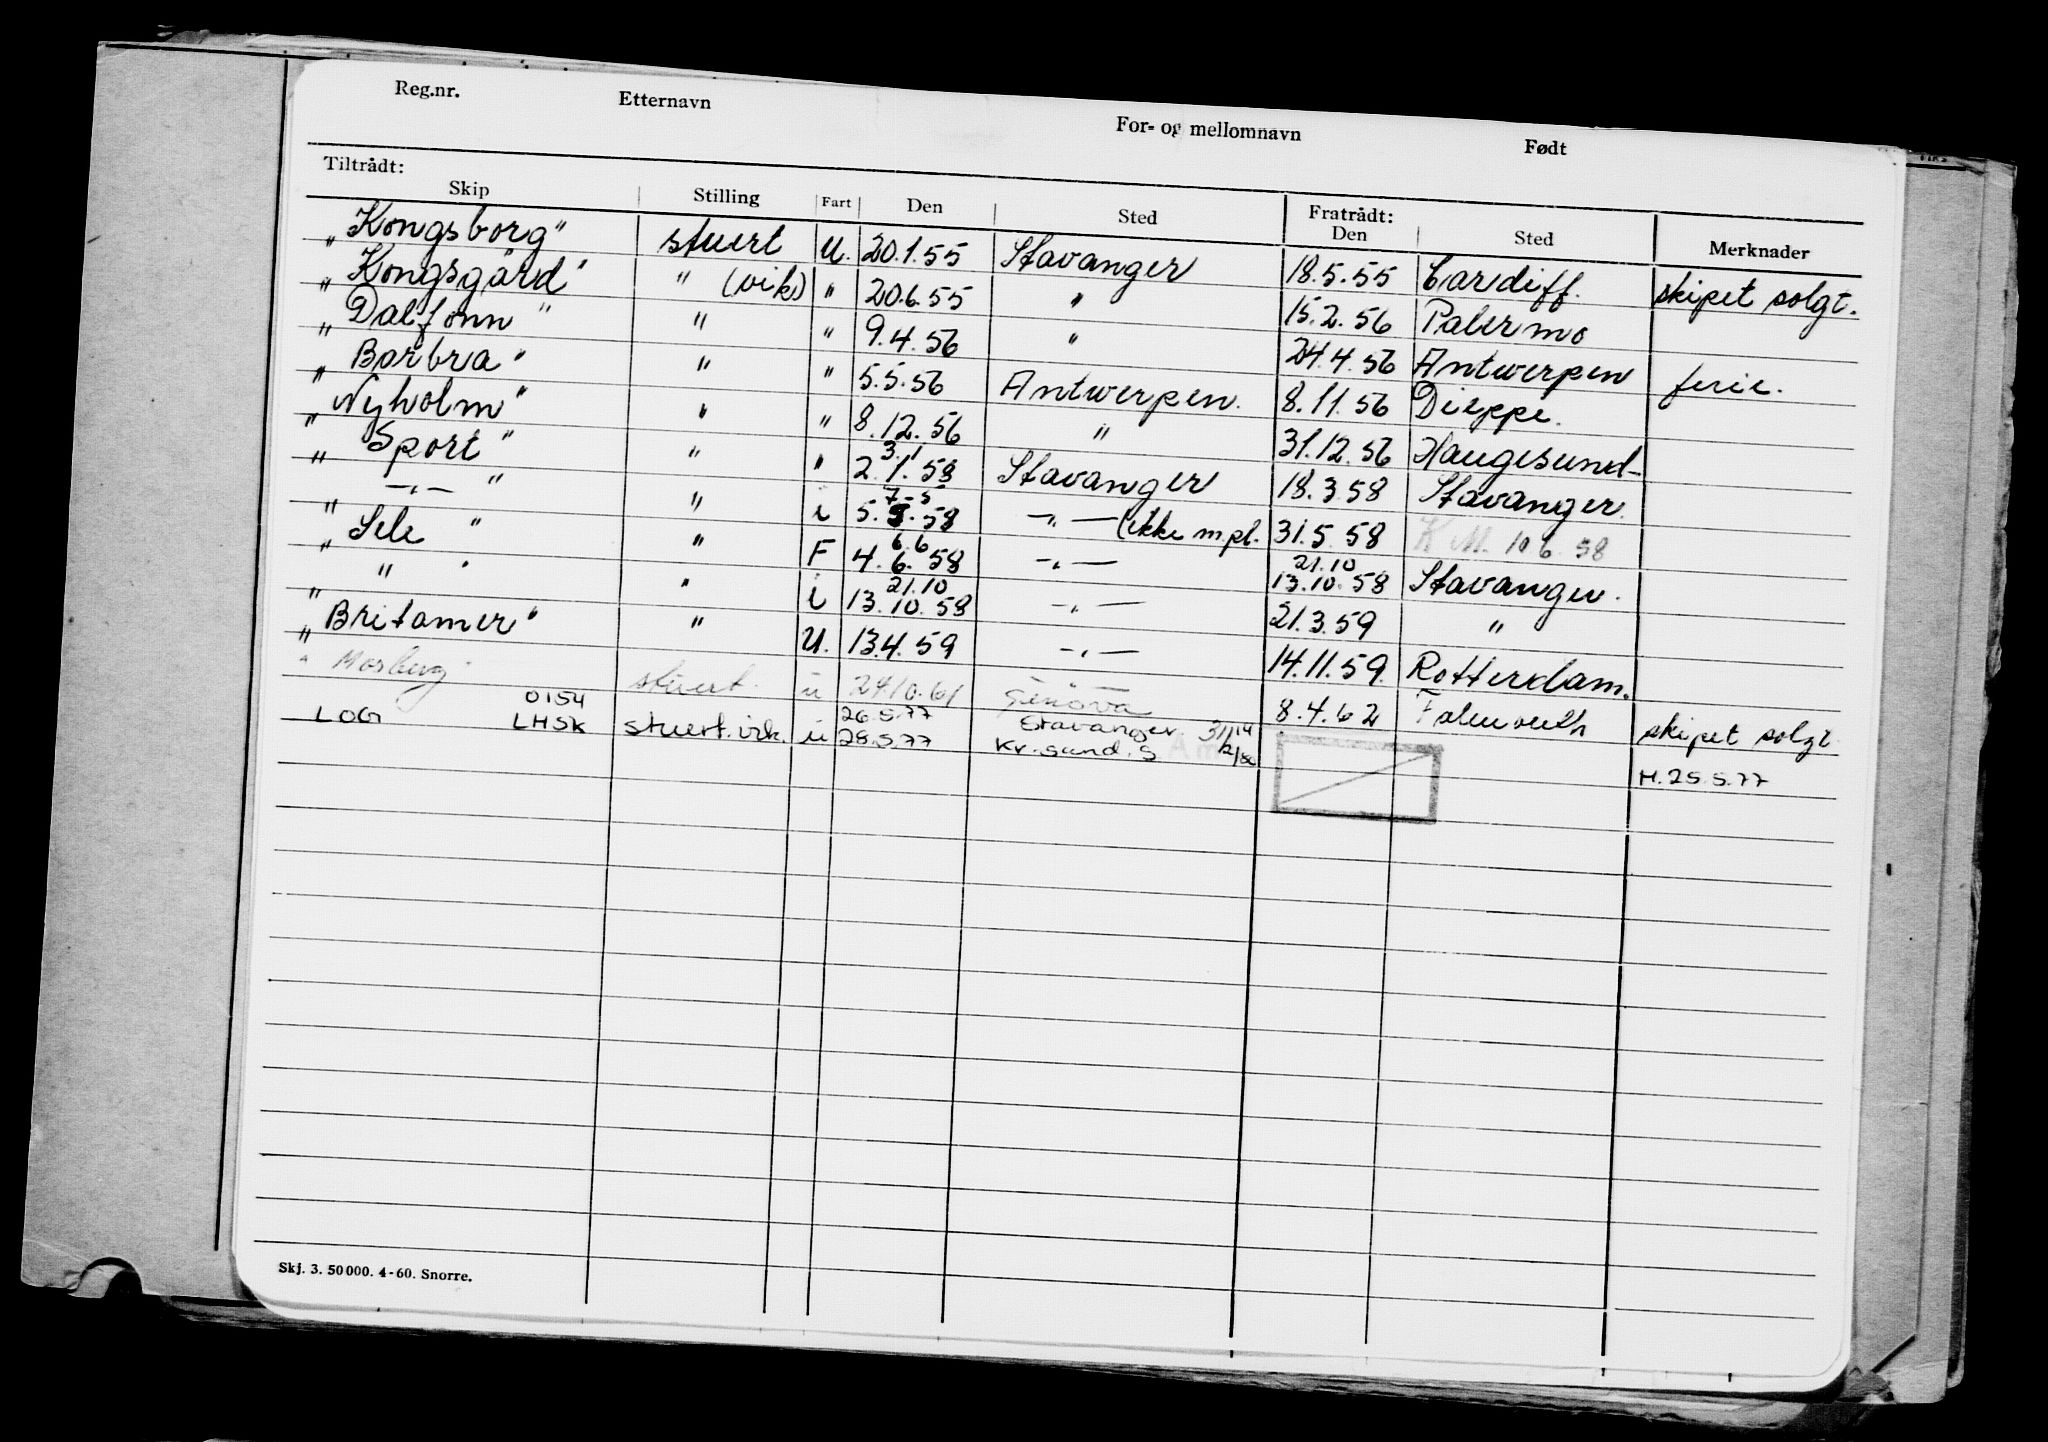 Reg.nr. Etternavn For- og mellomnavn Født
Tiltrådt: Fratrådt:
Skip Stilling Fart Den Sted Den Sted Merknader
"Kongsborg" stuert U. 20.1.55 Stavanger 18.5.55 Cardiff. skipet solgt.
"Kongsgård" " (vik) " 20.6.55 " 15.2.56 Palermo
"Dalfonn" " " 9.4.56 " 24.4.56 Antwerpen ferie.
"Barbra" " " 5.5.56 Antwerpen. 8.11.56 Dieppe.
"Nyholm" " " 8.12.56 " 31.12.56 Haugesund
3.1
"Sport" " " 2.1.58 Stavanger 18.3.58 Stavanger.
7-5
" -"- " " i 5.5.58 -"- (ikke m.pl. 31.5.58 K.M. 10.6.58
6.6 21.10
"Sele" " F 4.6.58 -"- 13.10.58 Stavanger.
21.10
" " " " i 13.10.58 -"- 21.3.59 "
"Britamer" " U. 13.4.59 -"- 14.11.59. Rotterdam.
" Mosberg stuert. u 24.10.61 Genova 8.4.62 Falmouth skipet solgt
0154 26.5.77 Stavanger. 31/14
LOG LHSK stuert.vik. u 28.5.77 Kr.sand.S 12/80 M.25.5.77
Skj. 3. 50000. 4-60. Snorre.